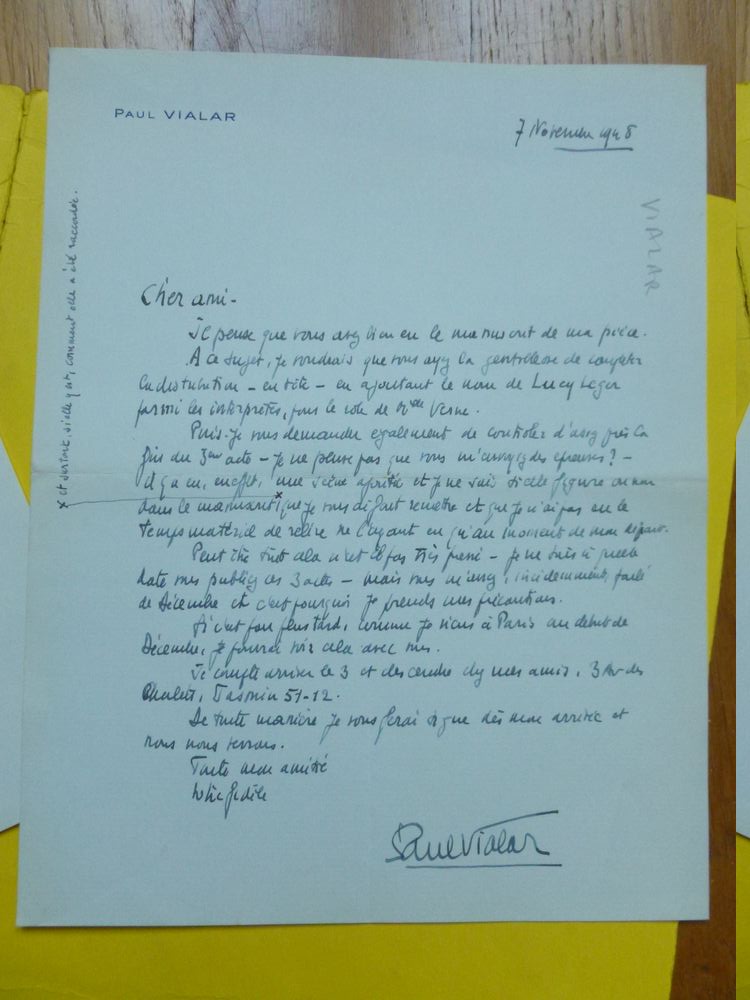 PAUL VIALAR
7 Novembre 1948
VIALAR
Cher ami -
Je pense que vous avez bien eu le manuscrit de ma pièce.
A ce sujet, je voudrais que vous ayez la gentillesse de compléter
la distribution - en tête - en ajoutant le nom de Lucy Leger
parmi les interprètes, pour le rôle de Mme Verne.
Puis-je vous demander également de contrôler d'assez près la
fin du 3ème acte - Je ne pense pas que vous m'envoyiez des épreuves? -
il y a eu, en effet, une scène ajoutée et je ne sais si elle figure ou non
dans le manuscrit x que je vous ai fait remettre et que je n'ai pas eu le
temps matériel de relire ne l'ayant eu qu'au moment de mon départ.
Peut être tout cela n'est il pas très pressé - je ne sais à quelle
date vous publiez ces 3 actes - mais vous m'avez, incidemment, parlé
de Décembre et c'est pourquoi je prends mes précautions.
Si c'est pour plus tard, comme je viens à Paris au début de
Décembre, je pourrai voir cela avec vous.
Je compte arriver le 3 et descendre chez mes amis, 3 Av. des
Chalets, Jasmin 51-12.
De toute manière je vous ferai signe dès mon arrivée et
nous nous verrons.
Toute mon amitié
votre fidèle
Paul Vialar
x et surtout, si elle y est, comment elle a été raccordée.